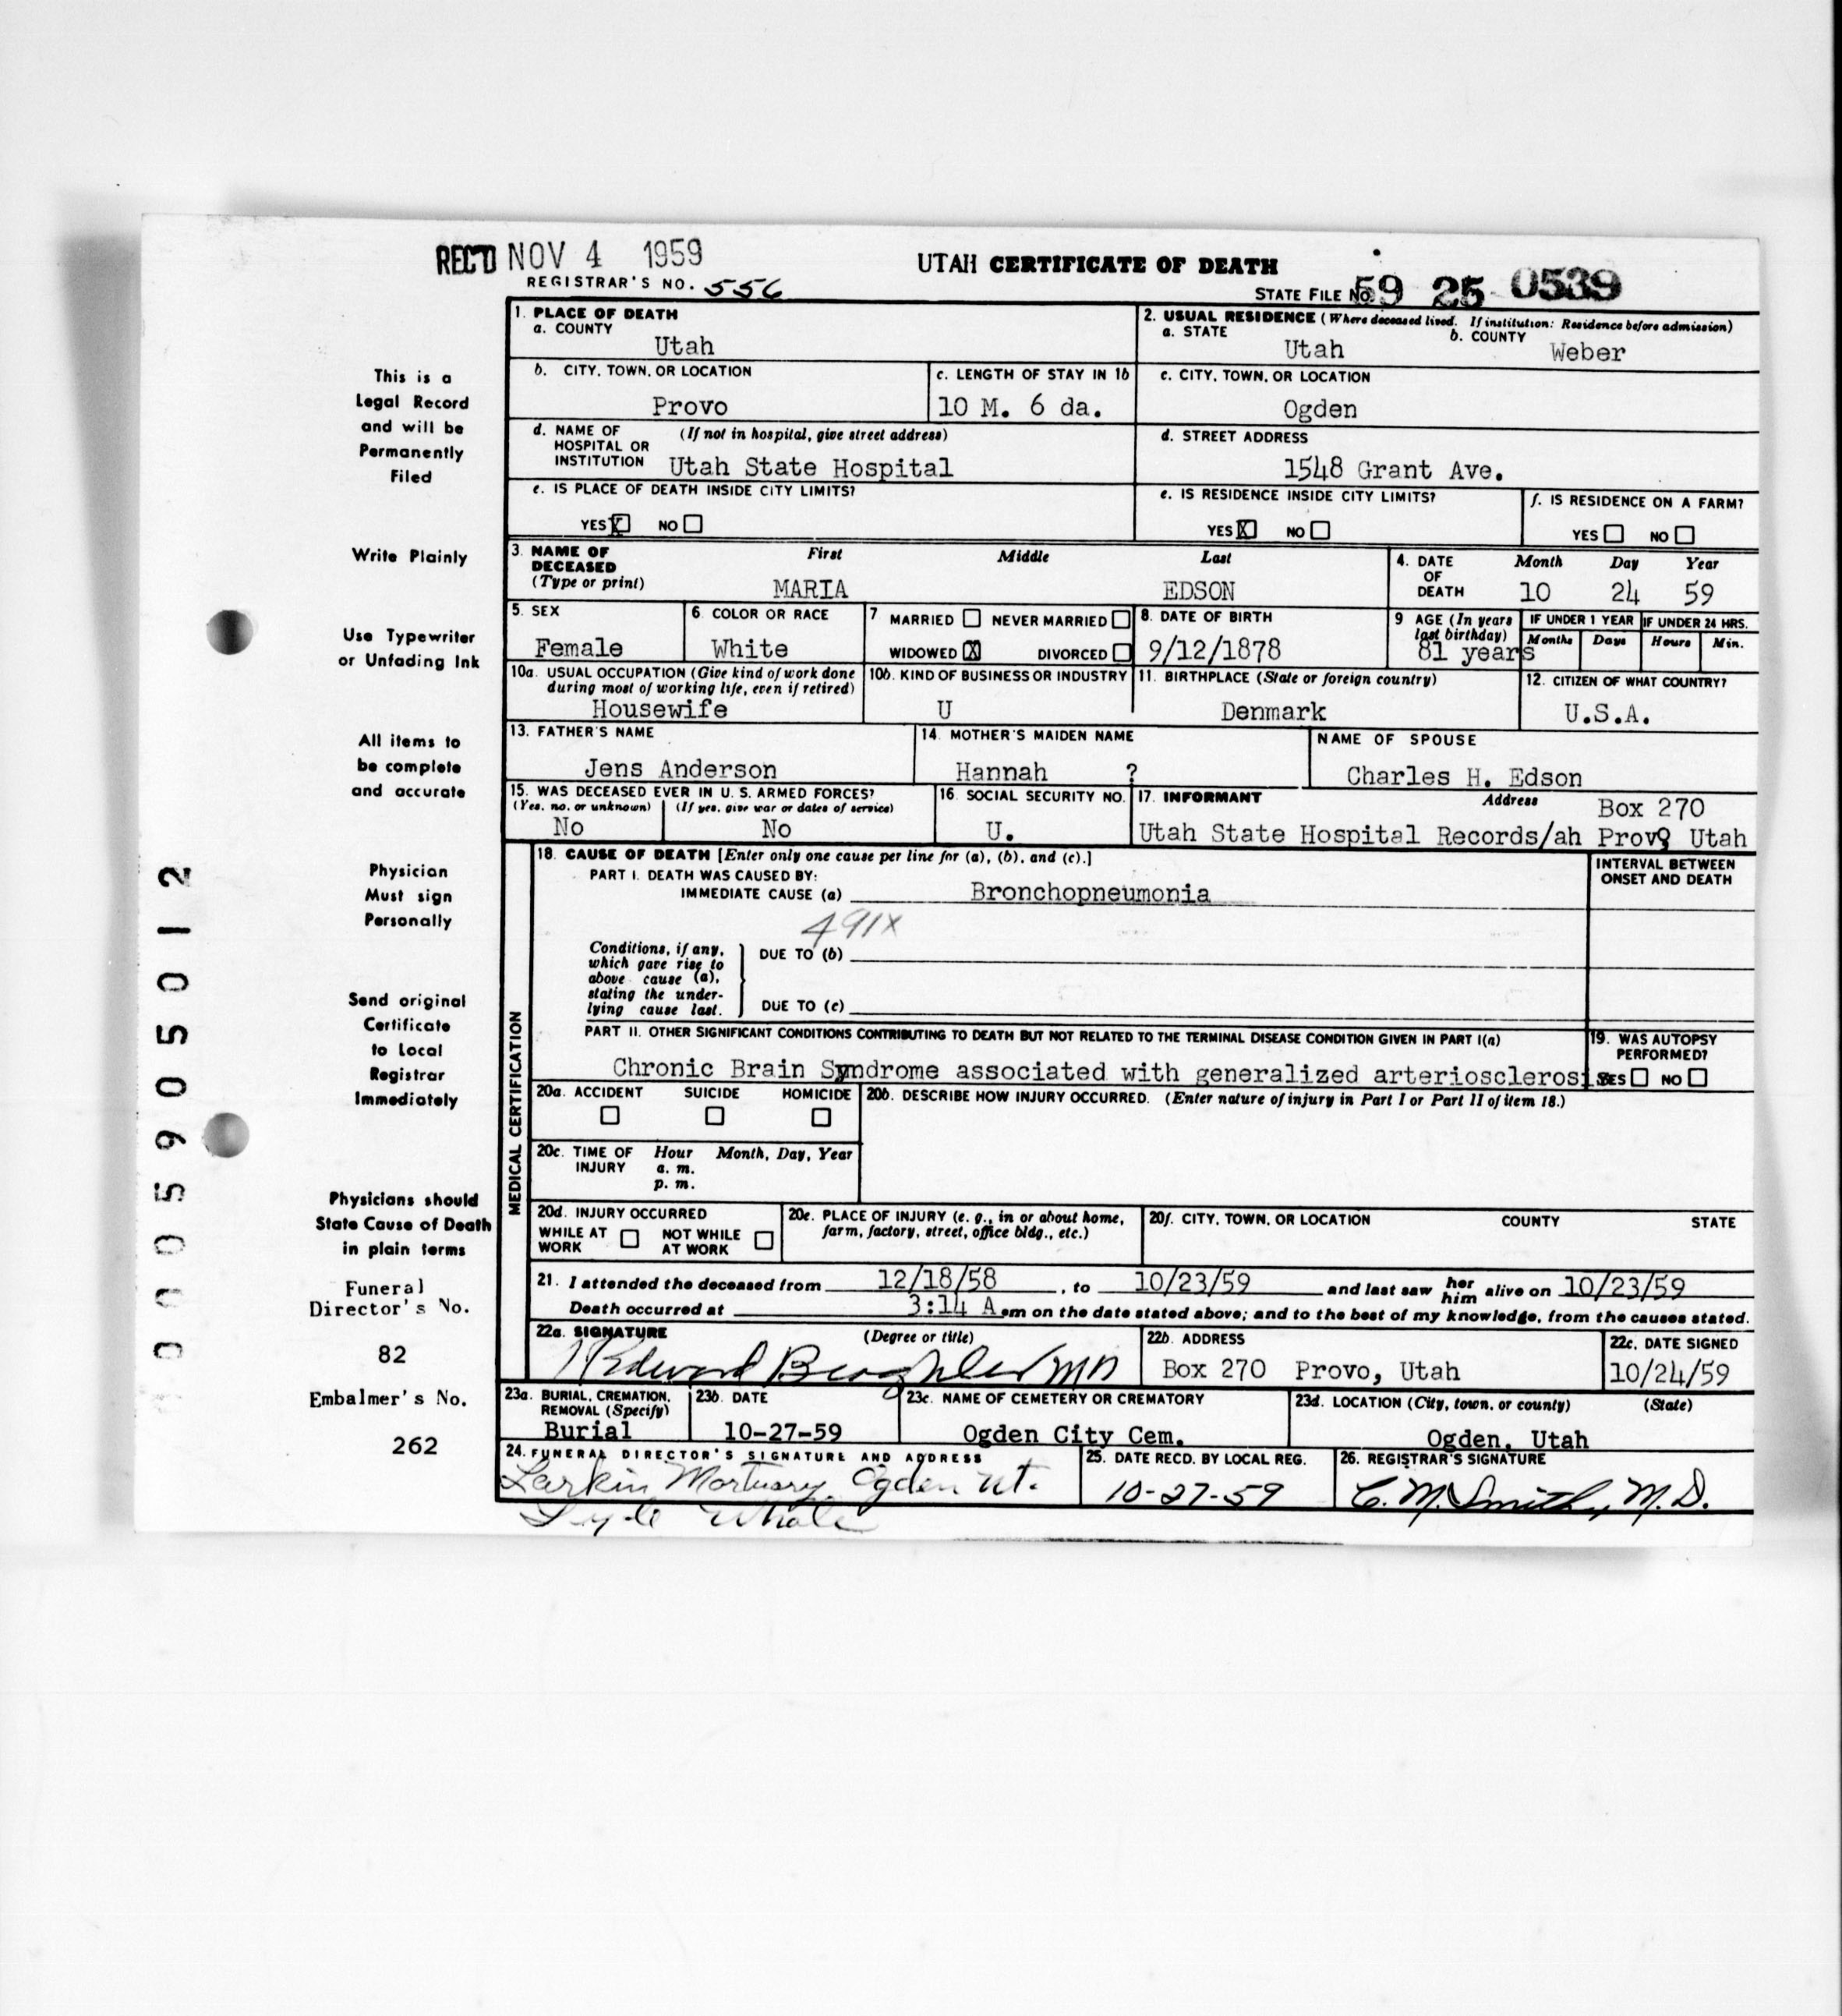 REC'D NOV 4 1959
UTAH CERTIFICATE OF DEATH
REGISTRAR'S NO. 556
STATE FILE NO. 59 25 0539
1. PLACE OF DEATH
a. COUNTY
Utah
2. USUAL RESIDENCE (Where deceased lived. If institution: Residence before admission)
a. STATE
b. COUNTY
Utah
Weber
b. CITY, TOWN, OR LOCATION
Provo
c. LENGTH OF STAY IN 1b
10 M. 6 da.
c. CITY, TOWN, OR LOCATION
Ogden
d. NAME OF (If not in hospital, give street address)
HOSPITAL OR
INSTITUTION Utah State Hospital
d. STREET ADDRESS
1548 Grant Ave.
e. IS PLACE OF DEATH INSIDE CITY LIMITS?
YES X NO
e. IS RESIDENCE INSIDE CITY LIMITS?
YES X NO
f. IS RESIDENCE ON A FARM?
YES NO
3. NAME OF
DECEASED
(Type or print)
First Middle Last
MARIA EDSON
4. DATE
OF
DEATH
Month Day Year
10 24 59
5. SEX
Female
6. COLOR OR RACE
White
7 MARRIED NEVER MARRIED
WIDOWED X DIVORCED
8. DATE OF BIRTH
9/12/1878
9 AGE (In years
last birthday)
81 years
IF UNDER 1 YEAR
Months Days
IF UNDER 24 HRS.
Hours Min.
10a. USUAL OCCUPATION (Give kind of work done
during most of working life, even if retired)
Housewife
10b. KIND OF BUSINESS OR INDUSTRY
U
11. BIRTHPLACE (State or foreign country)
Denmark
12. CITIZEN OF WHAT COUNTRY?
U.S.A.
13. FATHER'S NAME
Jens Anderson
14. MOTHER'S MAIDEN NAME
Hannah ?
NAME OF SPOUSE
Charles H. Edson
15. WAS DECEASED EVER IN U. S. ARMED FORCES?
(Yes, no, or unknown) (If yes, give war or dates of service)
No No
16. SOCIAL SECURITY NO.
U.
17. INFORMANT Address
Box 270
Utah State Hospital Records/ah Provo, Utah
MEDICAL CERTIFICATION
18. CAUSE OF DEATH [Enter only one cause per line for (a), (b), and (c).]
PART I. DEATH WAS CAUSED BY:
IMMEDIATE CAUSE (a) Bronchopneumonia
INTERVAL BETWEEN
ONSET AND DEATH
491X
Conditions, if any,
which gave rise to
above cause (a),
stating the under-
lying cause last.
DUE TO (b)
DUE TO (c)
PART II. OTHER SIGNIFICANT CONDITIONS CONTRIBUTING TO DEATH BUT NOT RELATED TO THE TERMINAL DISEASE CONDITION GIVEN IN PART I(a)
Chronic Brain Syndrome associated with generalized arteriosclerosis
19. WAS AUTOPSY
PERFORMED?
YES NO
20a. ACCIDENT SUICIDE HOMICIDE
20b. DESCRIBE HOW INJURY OCCURRED. (Enter nature of injury in Part I or Part II of item 18.)
20c. TIME OF Hour Month, Day, Year
INJURY a. m.
p. m.
20d. INJURY OCCURRED
WHILE AT NOT WHILE
WORK AT WORK
20e. PLACE OF INJURY (e. g., in or about home,
farm, factory, street, office bldg., etc.)
20f. CITY, TOWN, OR LOCATION COUNTY STATE
21. I attended the deceased from 12/18/58, to 10/23/59 and last saw her him alive on 10/23/59
Death occurred at 3:14 A.m on the date stated above; and to the best of my knowledge, from the causes stated.
22a. SIGNATURE (Degree or title)
Edward MD
22b. ADDRESS
Box 270 Provo, Utah
22c. DATE SIGNED
10/24/59
23a. BURIAL, CREMATION,
REMOVAL (Specify)
Burial
23b. DATE
10-27-59
23c. NAME OF CEMETERY OR CREMATORY
Ogden City Cem.
23d. LOCATION (City, town, or county) (State)
Ogden, Utah
24. FUNERAL DIRECTOR'S SIGNATURE AND ADDRESS
Larkin Mortuary, Ogden Ut.
25. DATE RECD. BY LOCAL REG.
10-27-59
26. REGISTRAR'S SIGNATURE
C. M. Smith, M.D.
This is a
Legal Record
and will be
Permanently
Filed
Write Plainly
Use Typewriter
or Unfading Ink
All items to
be complete
and accurate
Physician
Must sign
Personally
Send original
Certificate
to Local
Registrar
Immediately
Physicians should
State Cause of Death
in plain terms
Funeral
Director's No.
82
Embalmer's No.
262
0005905012